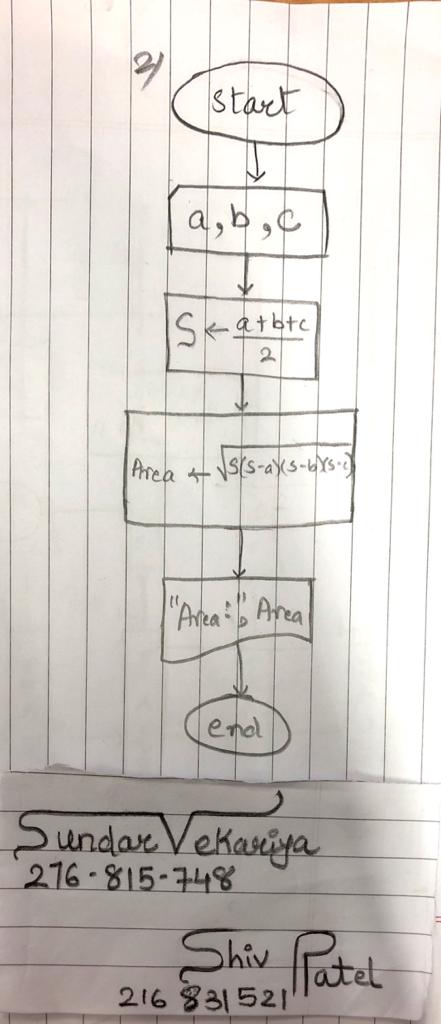 2)
Start
a, b, c
S ← a+b+c
2
Area ← √S(S-a)(S-b)(S-c)
"Area:", Area
end
Sundar Vekariya
276-815-748
Shiv Patel
216 831521